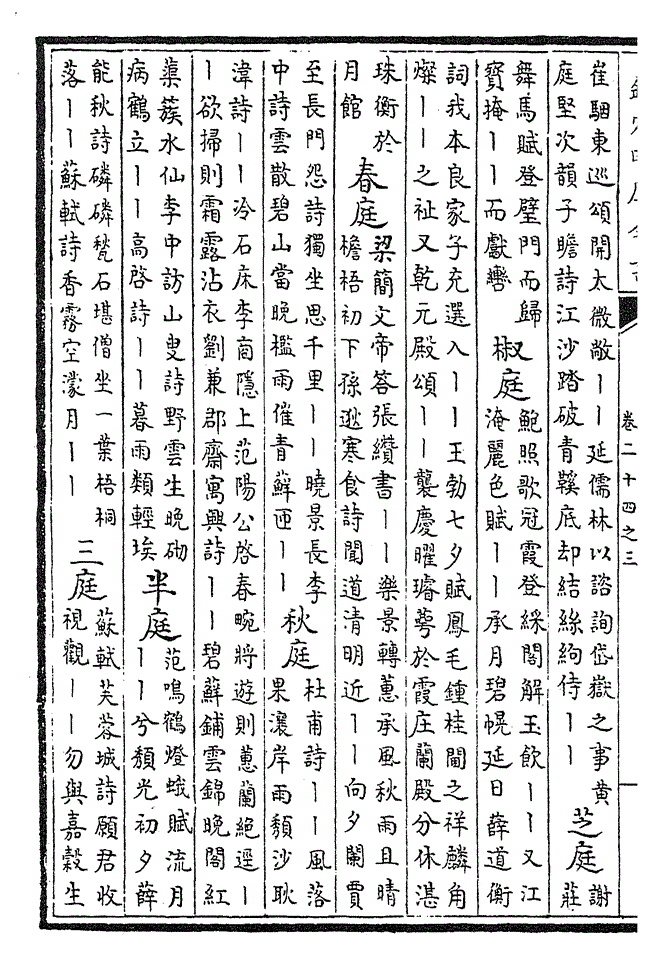 卷二十四之三
崔駰東巡頌開太微敞丨丨延儒林以諮詢岱嶽之事黃
庭堅次韻子瞻詩江沙踏破青鞵底却結絲絇侍丨丨
芝庭
謝
莊
舞馬賦登璧門而歸
寳掩丨丨而獻轡
椒庭
鮑照歌冠霞登綵閣解玉飲丨丨又江
淹麗色賦丨丨承月碧幌延日薛道衡
詞我本良家子充選入丨丨王勃七夕賦鳳毛鍾桂閫之祥麟角
燦丨丨之祉又乾元殿頌丨丨襲慶曜璿萼於霞庄蘭殿分休湛
珠衡於
月館
春庭
梁簡文帝答張纘書丨丨樂景轉蕙承風秋雨且晴
檐梧初下孫逖寒食詩聞道清明近丨丨向夕闌賈
至長門怨詩獨坐思千里丨丨曉景長李
中詩雲散碧山當晚檻雨催青蘚匝丨丨
秋庭
杜甫詩丨丨風落
果瀼岸雨頹沙耿
湋詩丨丨冷石床李商隱上范陽公啓春畹將遊則蕙蘭絶逕丨
丨欲掃則霜露沾衣劉兼郡齋寓興詩丨丨碧蘚鋪雲錦晚閣紅
蕖簇水仙李中訪山叟詩野雲生晚砌
病鶴立丨丨高啓詩丨丨暮雨類輕埃
半庭
范鳴鶴燈蛾賦流月
丨丨兮頹光初夕薛
能秋詩磷磷甃石堪僧坐一葉梧桐
落丨丨蘇軾詩香霧空濛月丨丨
三庭
蘇軾芙蓉城詩願君收
視觀丨丨勿與嘉穀生